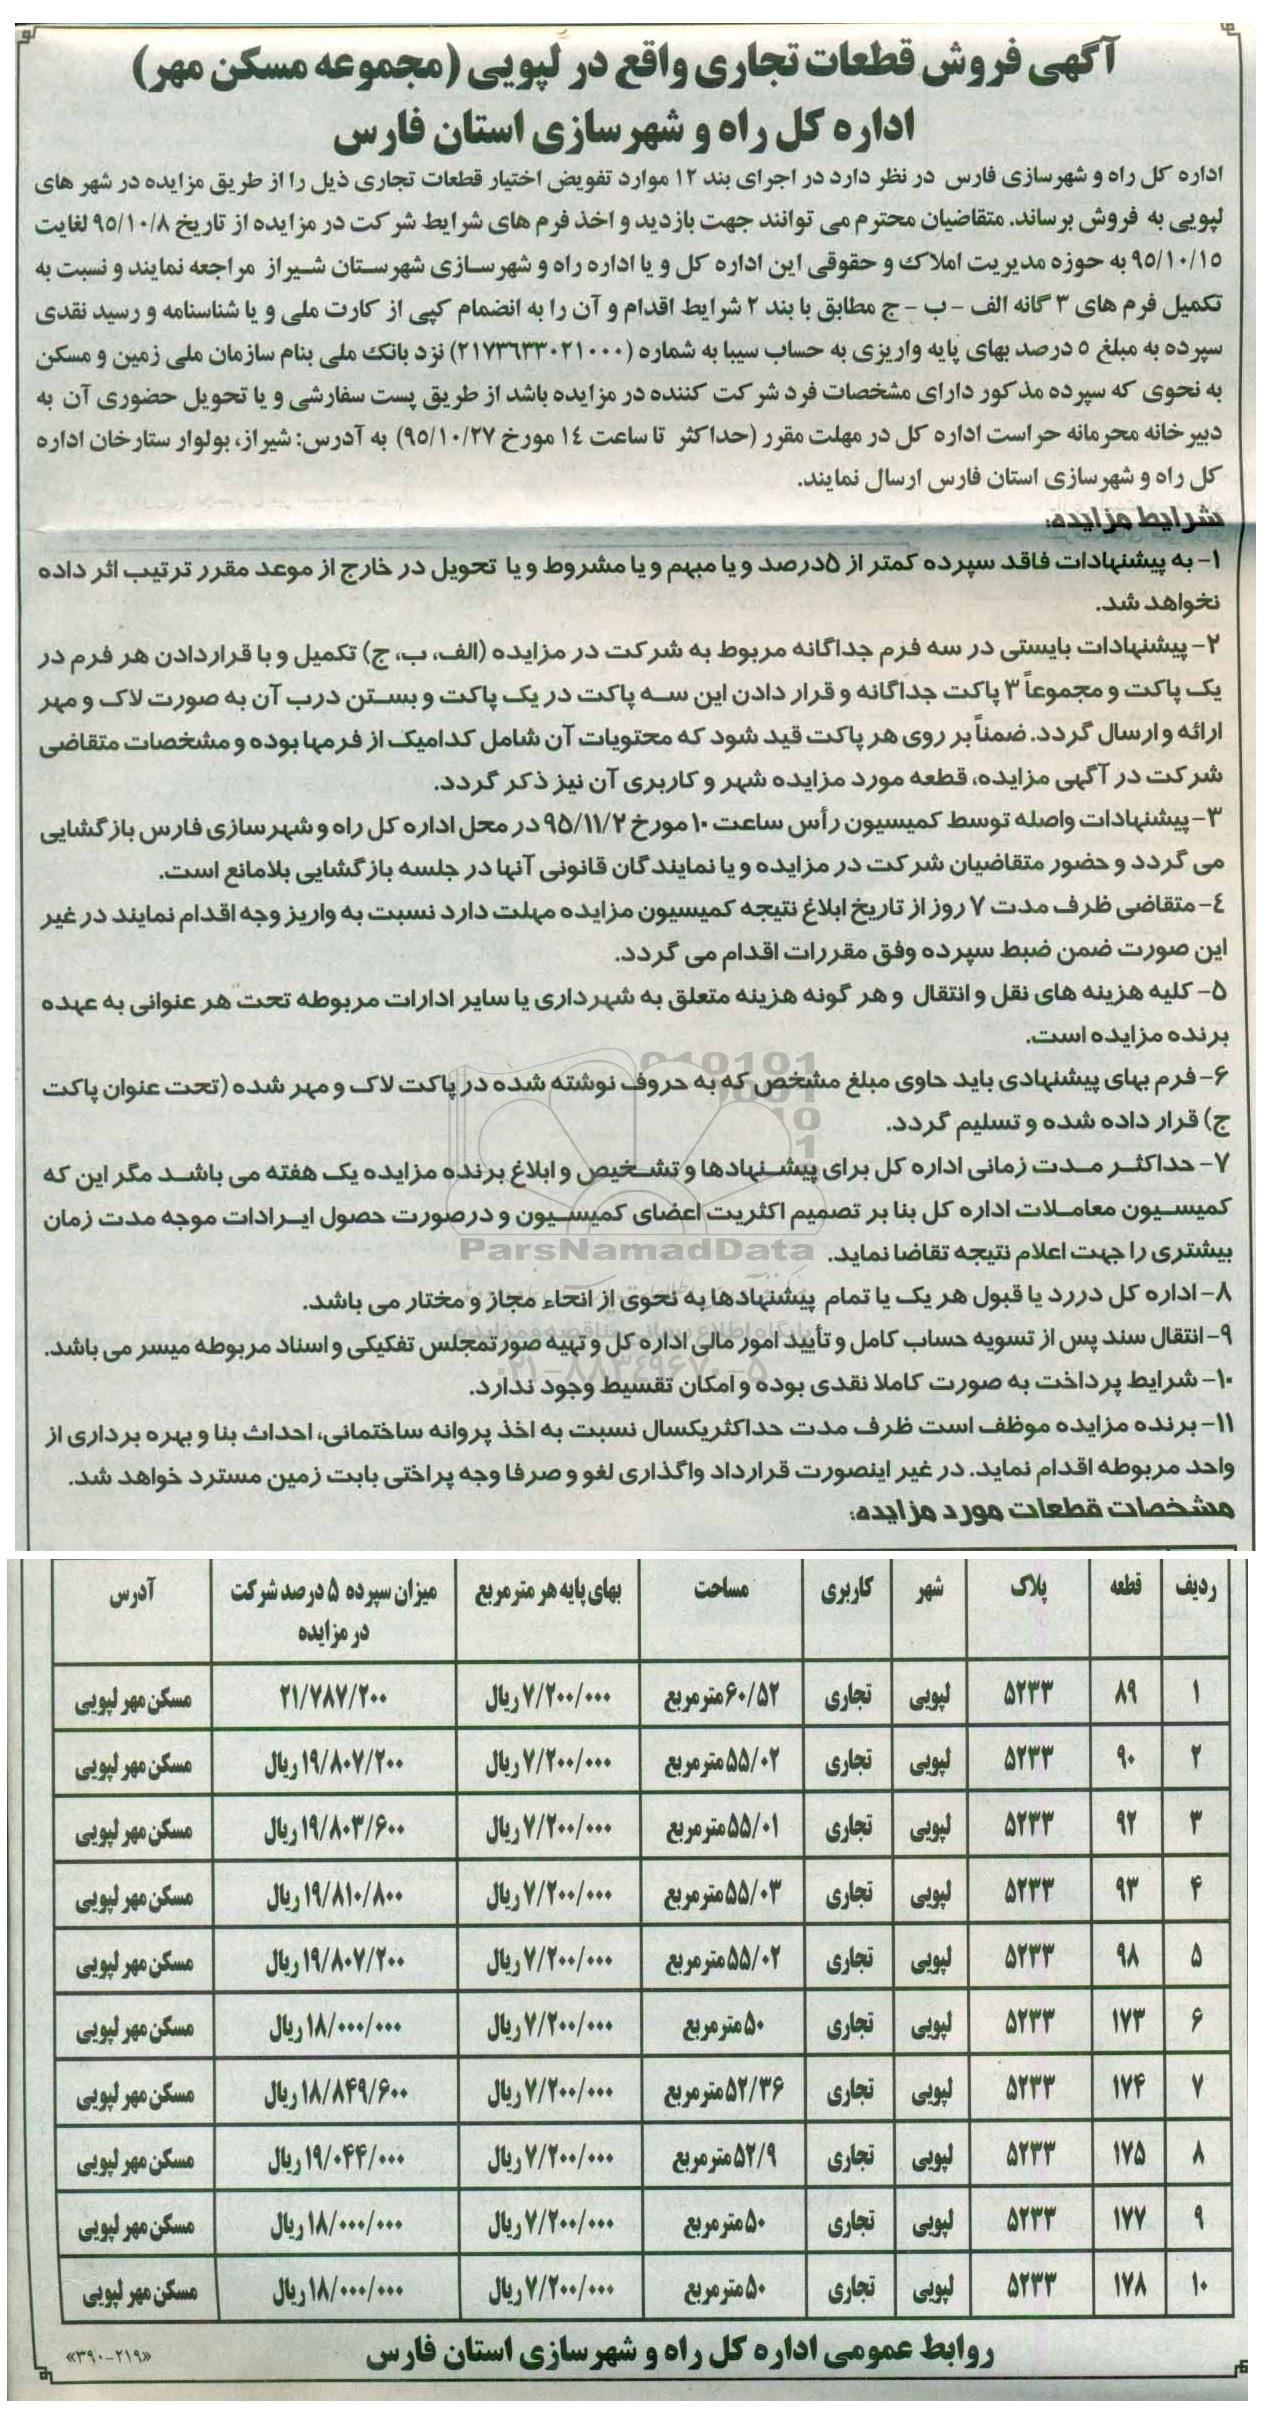 آگهی فروش قطعات تجاری واقع در لپویی (مجموعه مسکن مهر)
اداره کل راه و شهرسازی استان فارس
اداره کل راه و شهرسازی فارس در نظر دارد در اجرای بند ۱۲ موارد تفویض اختیار قطعات تجاری ذیل را از طریق مزایده در شهر های
لپویی به فروش برساند. متقاضیان محترم می توانند جهت بازدید و اخذ فرم های شرایط شرکت در مزایده از تاریخ ۹۵/۱۰/۸ لغایت
۹۵/۱۰/۱۵ به حوزه مدیریت املاک و حقوقی این اداره کل و یا اداره راه و شهرسازی شهرستان شیراز مراجعه نمایند و نسبت به
تکمیل فرم های ۳ گانه الف - ب - ج مطابق با بند ۲ شرایط اقدام و آن را به انضمام کپی از کارت ملی و یا شناسنامه و رسید نقدی
سپرده به مبلغ ۵ درصد بهای پایه واریزی به حساب سیبا به شماره (۲۱۷۳۶۳۳۰۲۱۰۰۰) نزد بانک ملی بنام سازمان ملی زمین و مسکن
به نحوی که سپرده مذکور دارای مشخصات فرد شرکت کننده در مزایده باشد از طریق پست سفارشی و یا تحویل حضوری آن به
دبیرخانه محرمانه حراست اداره کل در مهلت مقرر (حداکثر تا ساعت ۱۴ مورخ ۹۵/۱۰/۲۷) به آدرس: شیراز، بولوار ستارخان اداره
کل راه و شهرسازی استان فارس ارسال نمایند.
شرایط مزایده:
۱- به پیشنهادات فاقد سپرده کمتر از ۵درصد و یا مبهم و یا مشروط و یا تحویل در خارج از موعد مقرر ترتیب اثر داده
نخواهد شد.
۲- پیشنهادات بایستی در سه فرم جداگانه مربوط به شرکت در مزایده (الف، ب، ج) تکمیل و با قراردادن هر فرم در
یک پاکت و مجموعاً ۳ پاکت جداگانه و قرار دادن این سه پاکت در یک پاکت و بستن درب آن به صورت لاک و مهر
ارائه و ارسال گردد. ضمناً بر روی هر پاکت قید شود که محتویات آن شامل کدامیک از فرمها بوده و مشخصات متقاضی
شرکت در آگهی مزایده، قطعه مورد مزایده شهر و کاربری آن نیز ذکر گردد.
۳- پیشنهادات واصله توسط کمیسیون رأس ساعت ۱۰ مورخ ۹۵/۱۱/۲ در محل اداره کل راه و شهرسازی فارس بازگشایی
می گردد و حضور متقاضیان شرکت در مزایده و یا نمایندگان قانونی آنها در جلسه بازگشایی بلامانع است.
۴- متقاضی ظرف مدت ۷ روز از تاریخ ابلاغ نتیجه کمیسیون مزایده مهلت دارد نسبت به واریز وجه اقدام نمایند در غیر
این صورت ضمن ضبط سپرده وفق مقررات اقدام می گردد.
۵- کلیه هزینه های نقل و انتقال و هر گونه هزینه متعلق به شهرداری یا سایر ادارات مربوطه تحت هر عنوانی به عهده
برنده مزایده است.
۶- فرم بهای پیشنهادی باید حاوی مبلغ مشخص که به حروف نوشته شده در پاکت لاک و مهر شده (تحت عنوان پاکت
ج) قرار داده شده و تسلیم گردد.
۷- حداکثر مدت زمانی اداره کل برای پیشنهادها و تشخیص و ابلاغ برنده مزایده یک هفته می باشد مگر این که
کمیسیون معاملات اداره کل بنا بر تصمیم اکثریت اعضای کمیسیون و درصورت حصول ایرادات موجه مدت زمان
بیشتری را جهت اعلام نتیجه تقاضا نماید.
ParsNamadData
۸- اداره کل دررد یا قبول هر یک یا تمام پیشنهادها به نحوی از انحاء مجاز و مختار می باشد.
۹- انتقال سند پس از تسویه حساب کامل و تأیید امور مالی اداره کل و تهیه صورتمجلس تفکیکی و اسناد مربوطه میسر می باشد.
۰۲۱-۸۸۳۴۹۶۷۰-۵
۱۰- شرایط پرداخت به صورت کاملا نقدی بوده و امکان تقسیط وجود ندارد.
۱۱- برنده مزایده موظف است ظرف مدت حداکثریکسال نسبت به اخذ پروانه ساختمانی، احداث بنا و بهره برداری از
واحد مربوطه اقدام نماید. در غیر اینصورت قرارداد واگذاری لغو و صرفا وجه پراختی بابت زمین مسترد خواهد شد.
مشخصات قطعات مورد مزایده:
ردیف قطعه پلاک شهر کاربری مساحت بهای پایه هر مترمربع میزان سپرده ۵ درصد شرکت در مزایده آدرس
۱ ۸۹ ۵۲۳۳ لپویی تجاری ۶۰/۵۲مترمربع ۷/۲۰۰/۰۰۰ ریال ۲۱/۷۸۷/۲۰۰ مسکن مهر لپویی
۲ ۹۰ ۵۲۳۳ لپویی تجاری ۵۵/۰۲مترمربع ۷/۲۰۰/۰۰۰ ریال ۱۹/۸۰۷/۲۰۰ ریال مسکن مهر لپویی
۳ ۹۲ ۵۲۳۳ لپویی تجاری ۵۵/۰۱مترمربع ۷/۲۰۰/۰۰۰ ریال ۱۹/۸۰۳/۶۰۰ ریال مسکن مهر لپویی
۴ ۹۳ ۵۲۳۳ لپویی تجاری ۵۵/۰۳مترمربع ۷/۲۰۰/۰۰۰ ریال ۱۹/۸۱۰/۸۰۰ ریال مسکن مهر لپویی
۵ ۹۸ ۵۲۳۳ لپویی تجاری ۵۵/۰۲مترمربع ۷/۲۰۰/۰۰۰ ریال ۱۹/۸۰۷/۲۰۰ ریال مسکن مهر لپویی
۶ ۱۷۳ ۵۲۳۳ لپویی تجاری ۵۰مترمربع ۷/۲۰۰/۰۰۰ ریال ۱۸/۰۰۰/۰۰۰ ریال مسکن مهر لپویی
۷ ۱۷۴ ۵۲۳۳ لپویی تجاری ۵۲/۳۶مترمربع ۷/۲۰۰/۰۰۰ ریال ۱۸/۸۴۹/۶۰۰ ریال مسکن مهر لپویی
۸ ۱۷۵ ۵۲۳۳ لپویی تجاری ۵۲/۹مترمربع ۷/۲۰۰/۰۰۰ ریال ۱۹/۰۴۴/۰۰۰ ریال مسکن مهر لپویی
۹ ۱۷۷ ۵۲۳۳ لپویی تجاری ۵۰مترمربع ۷/۲۰۰/۰۰۰ ریال ۱۸/۰۰۰/۰۰۰ ریال مسکن مهر لپویی
۱۰ ۱۷۸ ۵۲۳۳ لپویی تجاری ۵۰مترمربع ۷/۲۰۰/۰۰۰ ریال ۱۸/۰۰۰/۰۰۰ ریال مسکن مهر لپویی
روابط عمومی اداره کل راه و شهرسازی استان فارس
«۳۹۰-۲۱۹»